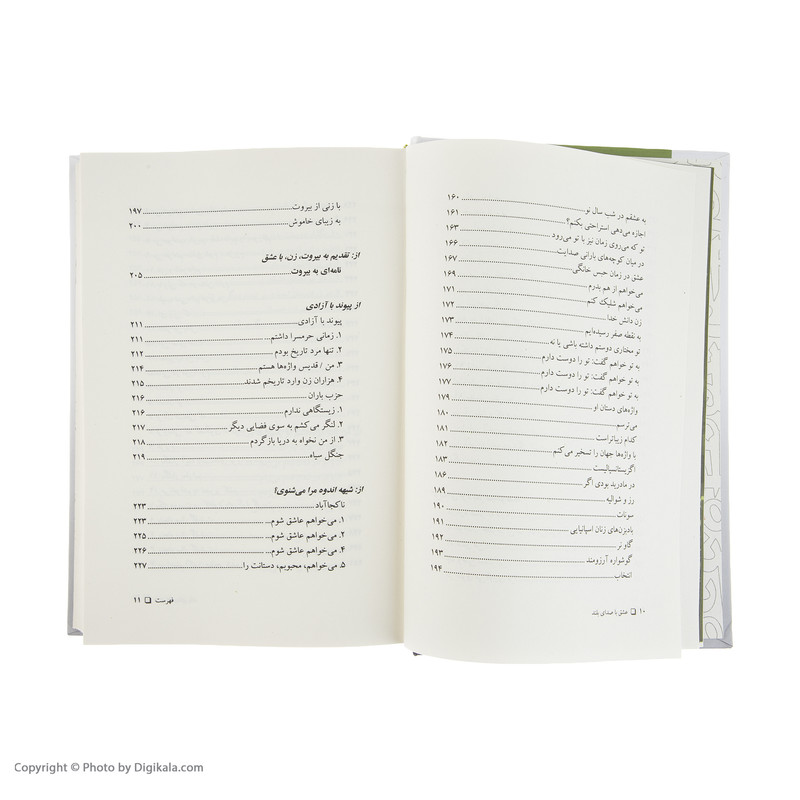 به عشقم در شب سال نو ........ ۱۶۰
اجازه می‌دهی استراحتی بکنم؟ ........ ۱۶۱
تو که می‌روی زمان نیز با تو می‌رود ........ ۱۶۳
در میان کوچه‌های بارانی صدایت ........ ۱۶۶
عشق در زمان حبس خانگی ........ ۱۶۷
می‌خواهم از هم بدرم ........ ۱۶۹
می‌خواهم شلیک کنم ........ ۱۷۱
زن دانش خدا ........ ۱۷۲
به نقطه صفر رسیده‌ایم ........ ۱۷۳
تو مختاری دوستم داشته باشی یا نه ........ ۱۷۴
به تو خواهم گفت: تو را دوست دارم ........ ۱۷۵
به تو خواهم گفت: تو را دوست دارم ........ ۱۷۶
به تو خواهم گفت: تو را دوست دارم ........ ۱۷۷
واژه‌های دستان او ........ ۱۷۹
می‌ترسم ........ ۱۸۰
کدام زیباتراست ........ ۱۸۱
با واژه‌ها جهان را تسخیر می‌کنم ........ ۱۸۲
اگزیستانسیالیست ........ ۱۸۳
در مادرید بودی اگر ........ ۱۸۶
رز و شوالیه ........ ۱۸۹
سونات ........ ۱۹۰
بادبزن‌های زنان اسپانیایی ........ ۱۹۱
گاو نر ........ ۱۹۲
گوشواره آرزومند ........ ۱۹۳
انتخاب ........ ۱۹۴
۱۰ ❏ عشق با صدای بلند
با زنی از بیروت ........ ۱۹۷
به زیبای خاموش ........ ۲۰۰
از: تقدیم به بیروت، زن، با عشق
نامه‌ای به بیروت ........ ۲۰۵
از پیوند با آزادی
پیوند با آزادی ........ ۲۱۱
۱. زمانی حرمسرا داشتم ........ ۲۱۱
۲. تنها مرد تاریخ بودم ........ ۲۱۲
۳. من / قدیس واژه‌ها هستم ........ ۲۱۴
۴. هزاران زن وارد تاریخم شدند ........ ۲۱۵
حزب باران ........ ۲۱۶
۱. زیستگاهی ندارم ........ ۲۱۶
۲. لنگر می‌کشم به سوی فضایی دیگر ........ ۲۱۷
۳. از من نخواه به دریا بازگردم ........ ۲۱۸
جنگل سیاه ........ ۲۱۹
از: شیهه اندوه مرا می‌شنوی؟
ناکجاآباد ........ ۲۲۳
۱. می‌خواهم عاشق شوم ........ ۲۲۳
۲. می‌خواهم عاشق شوم ........ ۲۲۵
۴. می‌خواهم عاشق شوم ........ ۲۲۶
۵. می‌خواهم، محبوبم، دستانت را ........ ۲۲۷
فهرست ❏ ۱۱
Copyright © Photo by Digikala.com